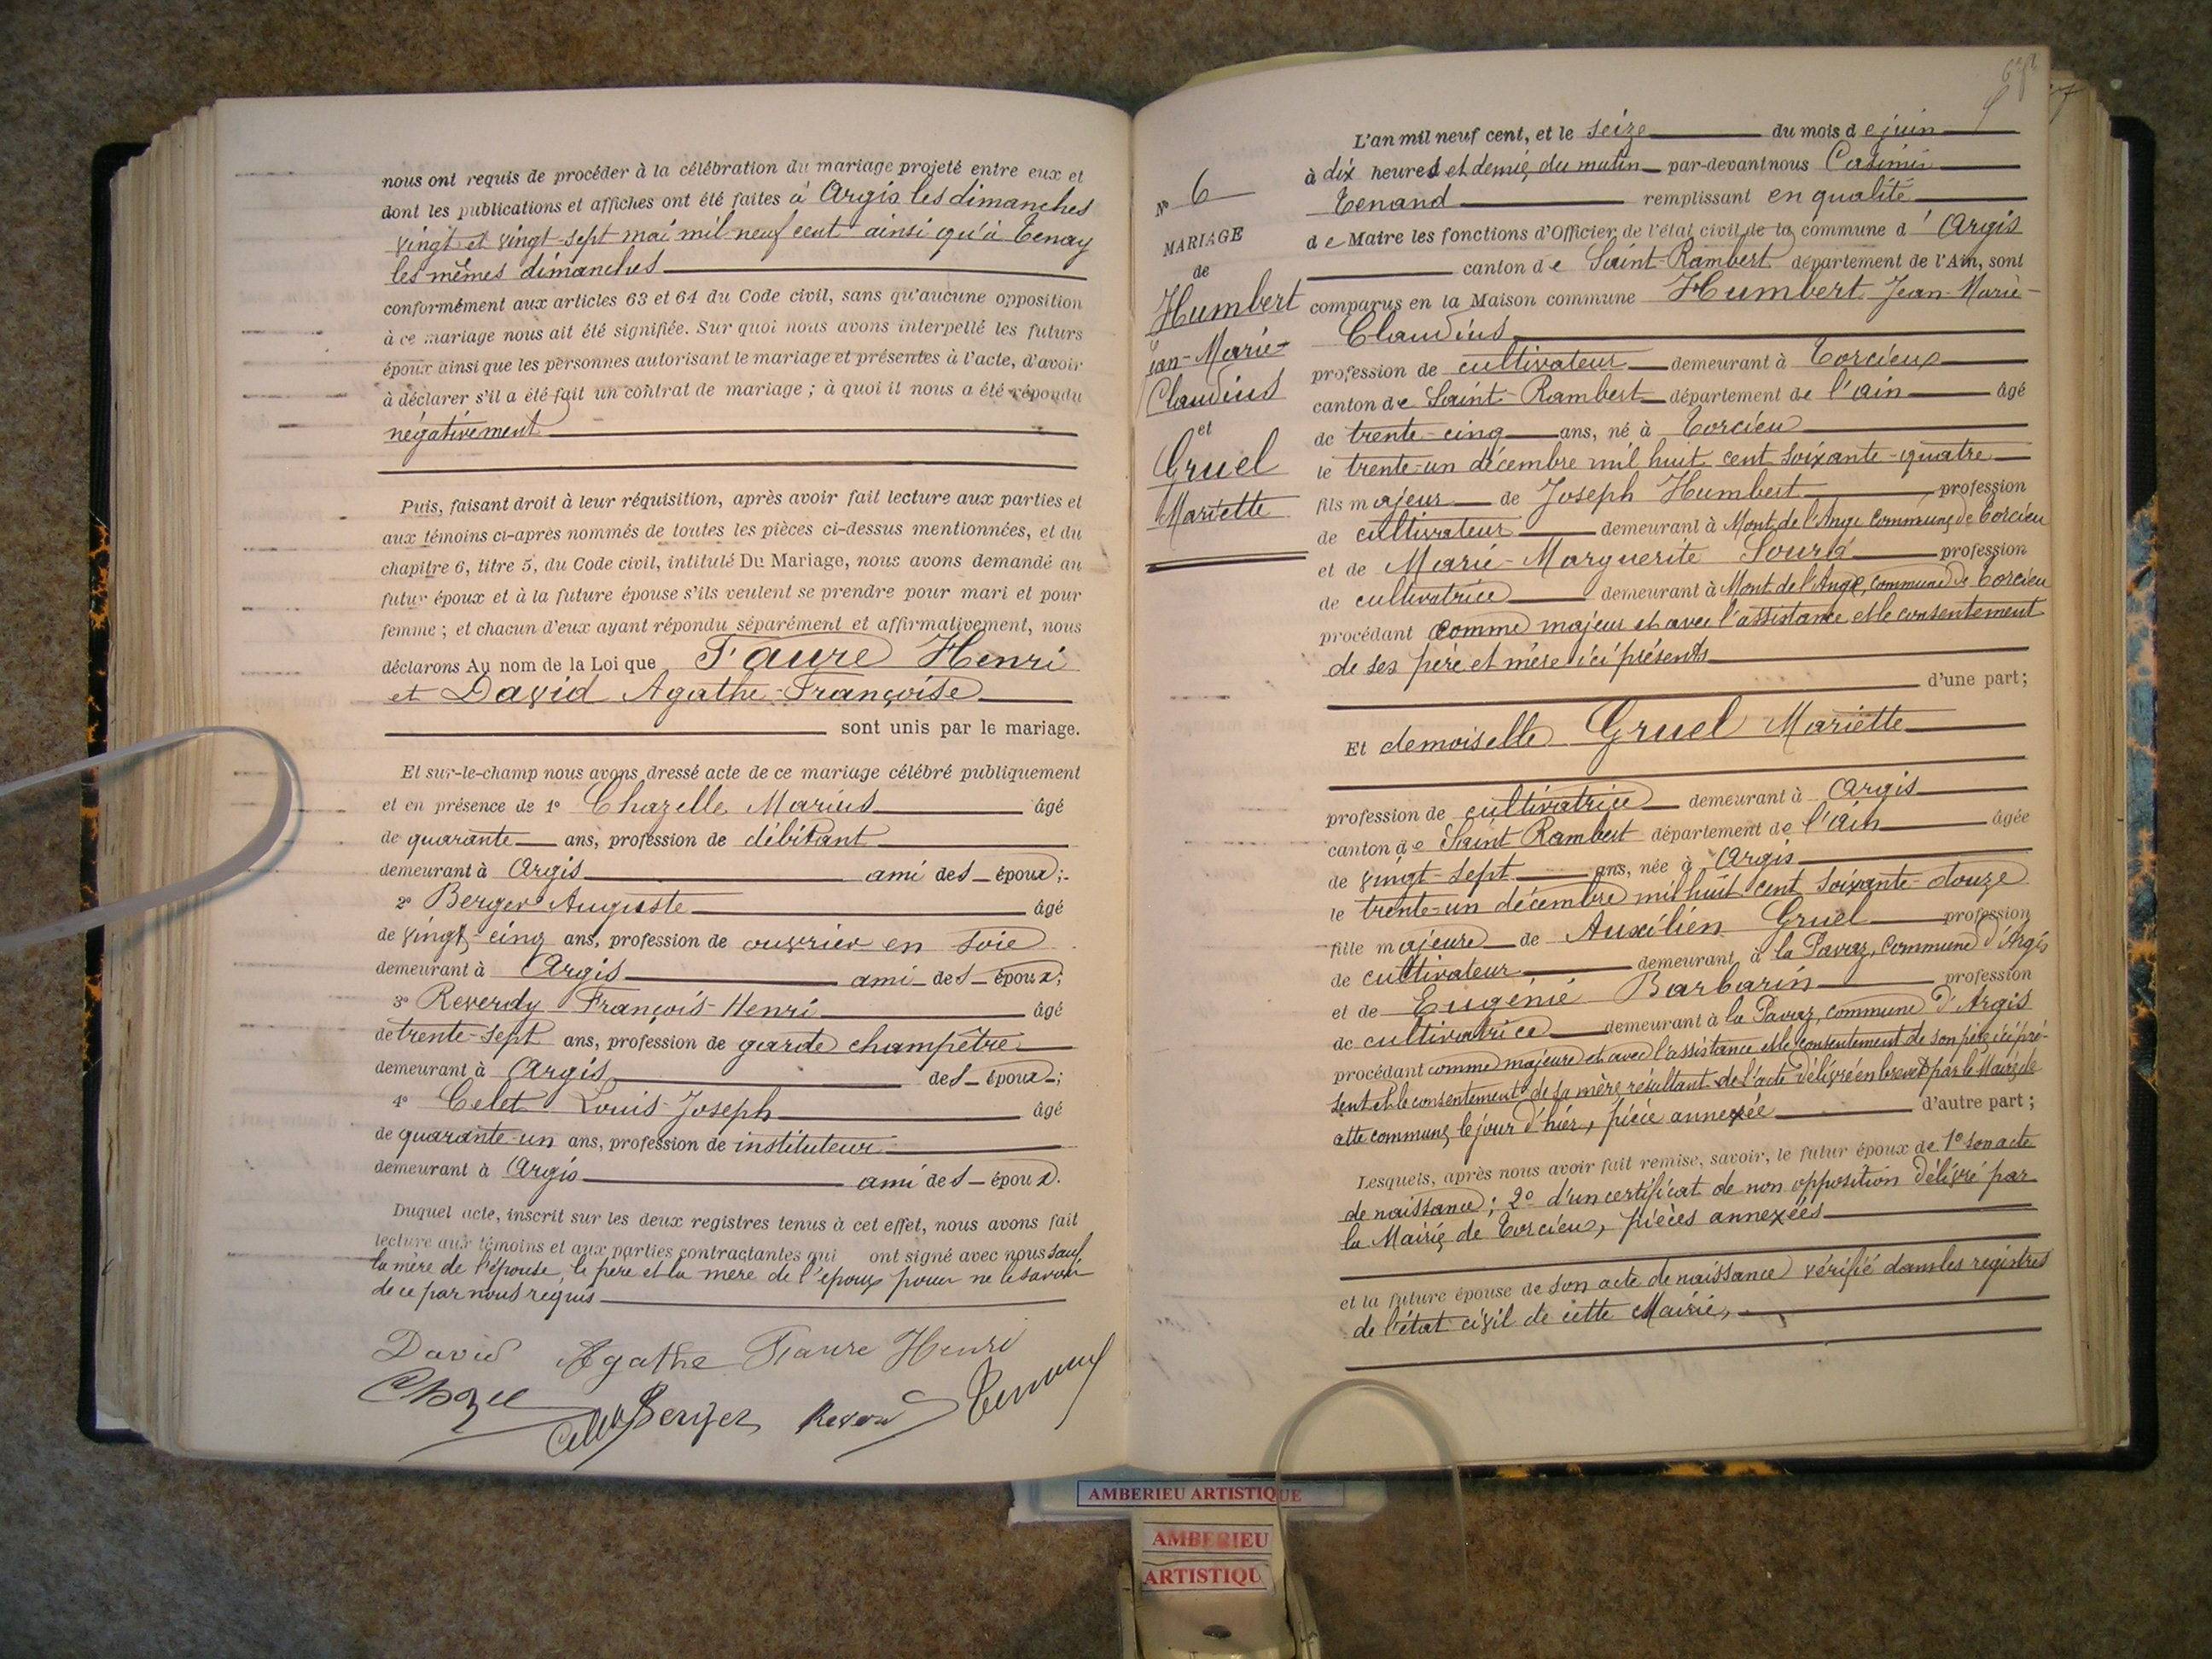 nous ont requis de procéder à la célébration du mariage projeté entre eux et
dont les publications et affiches ont été faites à Argis les dimanches
vingt et vingt-sept mai mil neuf cent ainsi qu'à Tenay
les mêmes dimanches
conformément aux articles 63 et 64 du Code civil, sans qu'aucune opposition
à ce mariage nous ait été signifiée. Sur quoi nous avons interpellé les futurs
époux ainsi que les personnes autorisant le mariage et présentes à l'acte, d'avoir
à déclarer s'il a été fait un contrat de mariage ; à quoi il nous a été répondu
négativement
Puis, faisant droit à leur réquisition, après avoir fait lecture aux parties et
aux témoins ci-après nommés de toutes les pièces ci-dessus mentionnées, et du
chapitre 6, titre 5, du Code civil, intitulé Du Mariage, nous avons demandé au
futur époux et à la future épouse s'ils veulent se prendre pour mari et pour
femme ; et chacun d'eux ayant répondu séparément et affirmativement, nous
déclarons Au nom de la Loi que Faure Henri
et David Agathe-Françoise
sont unis par le mariage.
Et sur-le-champ nous avons dressé acte de ce mariage célébré publiquement
et en présence de 1° Chazelle Marius âgé
de quarante ans, profession de débitant
demeurant à Argis ami des époux ;
2° Berger Auguste âgé
de vingt-cinq ans, profession de ouvrier en soie
demeurant à Argis ami des époux ;
3° Reverdy François-Henri âgé
de trente-sept ans, profession de garde champêtre
demeurant à Argis des époux ;
4° Celet Louis-Joseph âgé
de quarante-un ans, profession de instituteur
demeurant à Argis ami des époux.
Duquel acte, inscrit sur les deux registres tenus à cet effet, nous avons fait
lecture aux témoins et aux parties contractantes qui ont signé avec nous sauf
la mère de l'épouse, le père et la mère de l'époux pour ne le savoir
de ce par nous requis
David Agathe Faure Henri
Berger
Tenand
L'an mil neuf cent, et le seize du mois de juin
à dix heures et demie du matin par-devant nous Casimir
Tenand remplissant en qualité
de Maire les fonctions d'Officier de l'état civil de la commune d'Argis
canton de Saint-Rambert département de l'Ain, sont
comparus en la Maison commune Humbert Jean-Marie-
Claudius
profession de cultivateur demeurant à Torcieux
canton de Saint-Rambert département de l'ain âgé
de trente-cinq ans, né à Torcieu
le trente-un décembre mil huit cent soixante-quatre
fils majeur de Joseph Humbert profession
de cultivateur demeurant à Mont de l'Ange commune de Torcieu
et de Marie-Marguerite profession
de cultivatrice demeurant à Mont de l'Ange, commune de Torcieu
procédant comme majeur et avec l'assistance et le consentement
de ses père et mère ici présents
d'une part ;
N° 6
MARIAGE
de
Humbert
Jean-Marie-
Claudius
et
Gruel
Mariette
Et demoiselle Gruel Mariette
profession de cultivatrice demeurant à Argis
canton de Saint Rambert département de l'ain âgée
de vingt-sept ans, née à Argis
le trente-un décembre mil huit cent soixante-douze
fille majeure de Auxilien Gruel profession
de cultivateur demeurant à la Pavaz, commune d'Argis
et de Eugénie Barbarin profession
de cultivatrice demeurant à la Pavaz, commune d'Argis
procédant comme majeure et avec l'assistance et le consentement de son père ici pré-
sent et le consentement de sa mère résultant de l'acte délivré en brevet par le Maire de
cette commune, le jour d'hier, pièce annexée d'autre part ;
Lesquels, après nous avoir fait remise, savoir, le futur époux de 1° son acte
de naissance ; 2° d'un certificat de non opposition délivré par
la Mairie de Torcieu, pièces annexées
et la future épouse de son acte de naissance vérifié dans les registres
de l'état civil de cette Mairie,
AMBERIEU ARTISTIQUE
AMBERIEU
ARTISTIQU